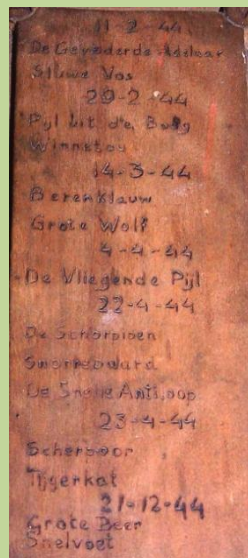 11-2-44
De Gevederde Adelaar
Sluwe Vos
29-2-44
Pijl uit de Boog
Winnetou
14-3-44
Berenklauw
Grote Wolf
4-4-44
De Vliegende Pijl
22-4-44
De Schorpioen
De Snelle Antiloop
23-4-44
Scherpoor
Tijgerkat
21-12-44
Grote Beer
Snelvoet